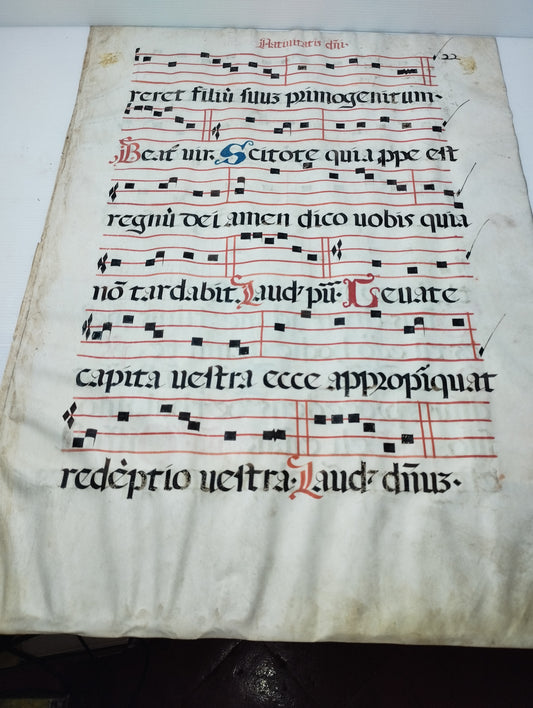 Natiuitatis dñi·
22
reret filiũ suuz primogenitum·
Beat̃ uir· Scitote quia ꝓpe est
regnũ dei amen dico uobis quia
nõ tardabit· Laudꝫ pũ· Leuate
capita uestra ecce appropĩquat
redẽptio uestra· Laudꝫ dñuz·